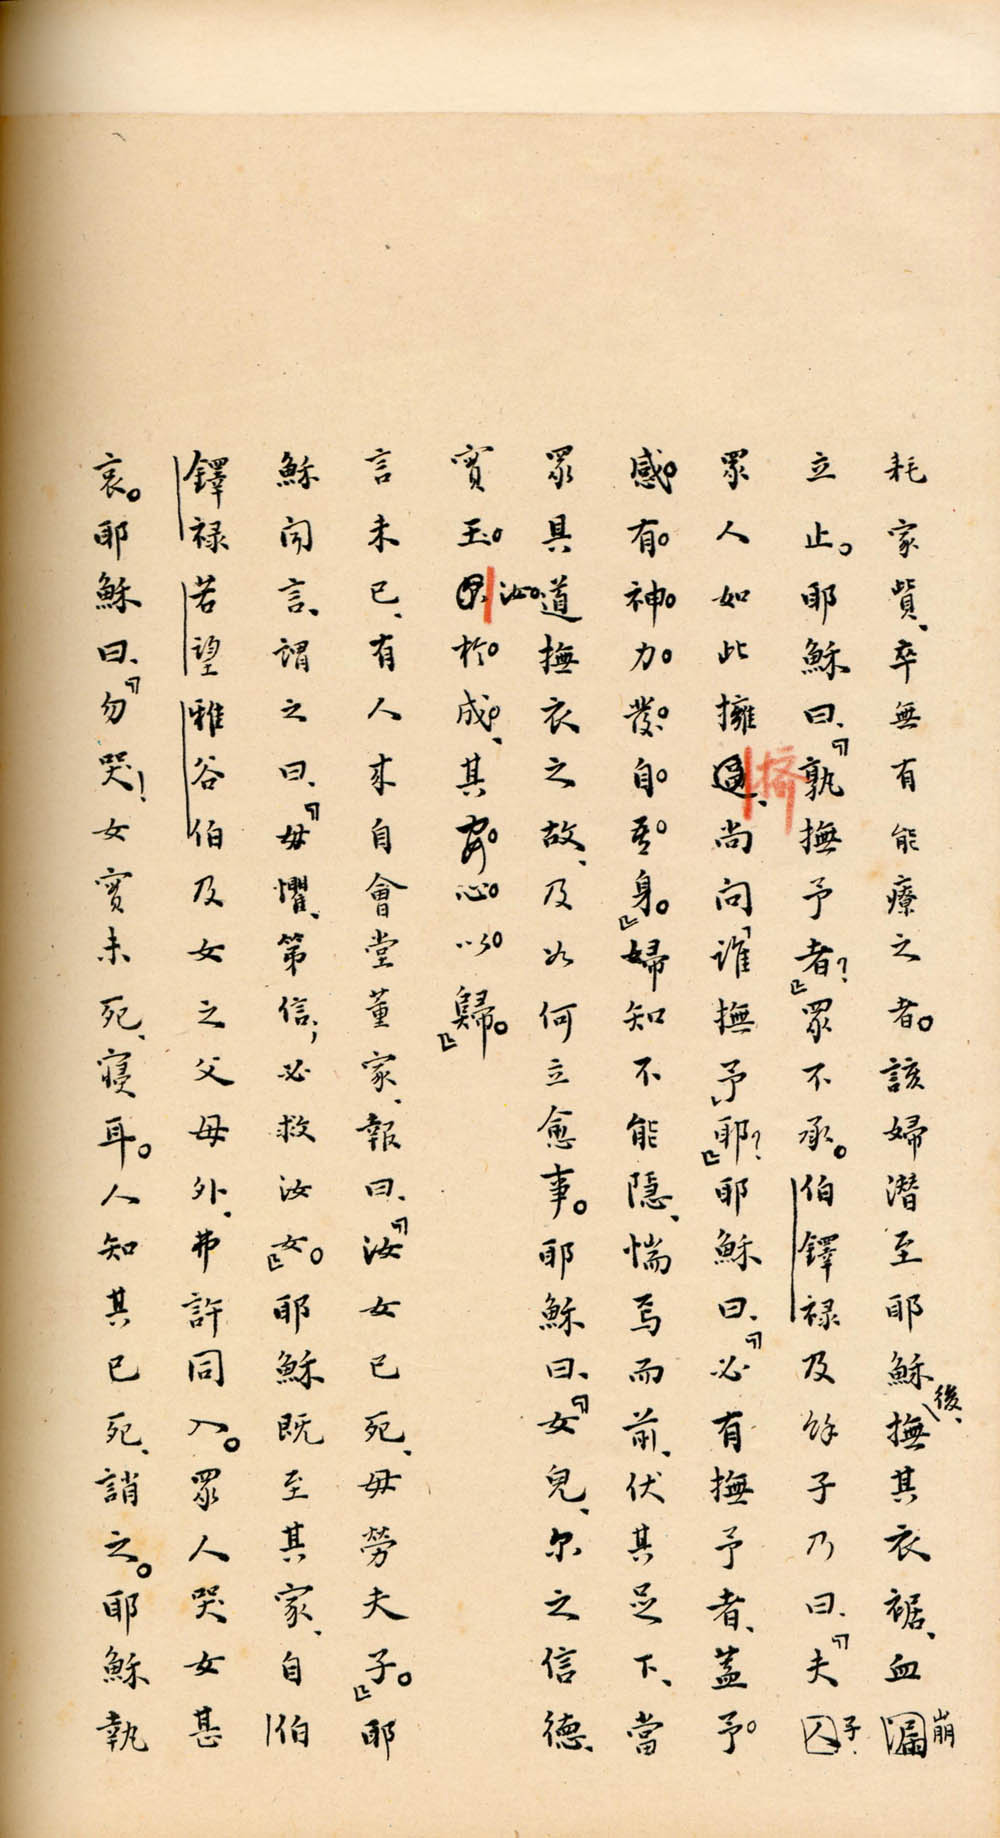 耗家貲、卒無有能療之者。該婦潛至耶穌後、撫其衣裾、血崩
立止。耶穌曰、『孰撫予者？』眾不承。伯鐸祿及餘子乃曰、『夫子、
眾人如此擁擠、尚問「誰撫予」耶？』耶穌曰、『必有撫予者、蓋予
感有神力發自吾身。』婦知不能隱、惴焉而前、伏其足下、當
眾具道撫衣之故、及如何立愈事。耶穌曰、『女兒、尔之信德、
實玉汝於成、其安心以歸。』
言未已、有人來自會堂董家、報曰、『汝女已死、毋勞夫子。』耶
穌聞言、謂之曰、『毋懼、第信；必救汝女。』耶穌既至其家、自伯
鐸祿若望雅谷伯及女之父母外、弗許同入。眾人哭女甚
哀。耶穌曰、『勿哭！女實未死、寢耳。人知其已死、誚之。耶穌執